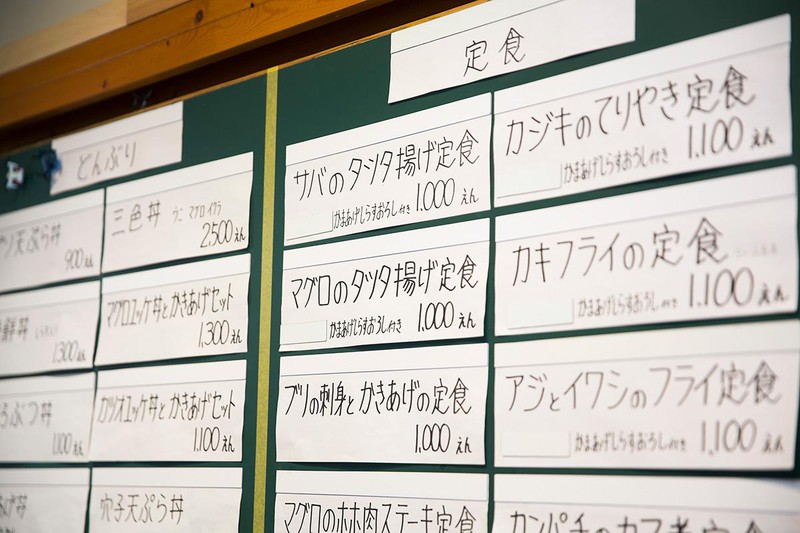 どんぶり
天ぷら丼
900えん
三色丼 ウニ マグロ イクラ
2,500えん
1,300えん
マグロユッケ丼とかきあげセット
1,300えん
ぶつ丼
1,100えん
カツオユッケ丼とかきあげセット
1,100えん
あげ丼
穴子天ぷら丼
定食
サバのタツタ揚げ定食
かまあげしらすおろし付き 1,000えん
カジキのてりやき定食
かまあげしらすおろし付き 1,100えん
マグロのタツタ揚げ定食
かまあげしらすおろし付き 1,000えん
カキフライの定食
かまあげしらすおろし付き 1,100えん
ブリの刺身とかきあげの定食
1,000えん
アジとイワシのフライ定食
かまあげしらすおろし付き 1,100えん
マグロのホホ肉ステーキ定食
カンパチのカブト煮定食